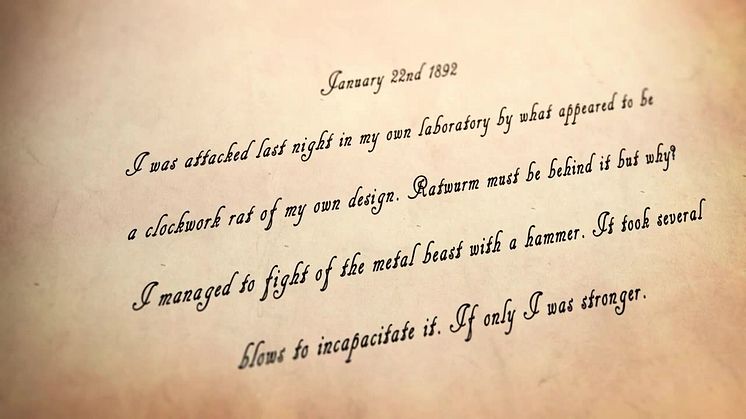 January 22nd 1892
I was attacked last night in my own laboratory by what appeared to be
a clockwork rat of my own design. Ratwurm must be behind it but why?
I managed to fight of the metal beast with a hammer. It took several
blows to incapacitate it. If only I was stronger.